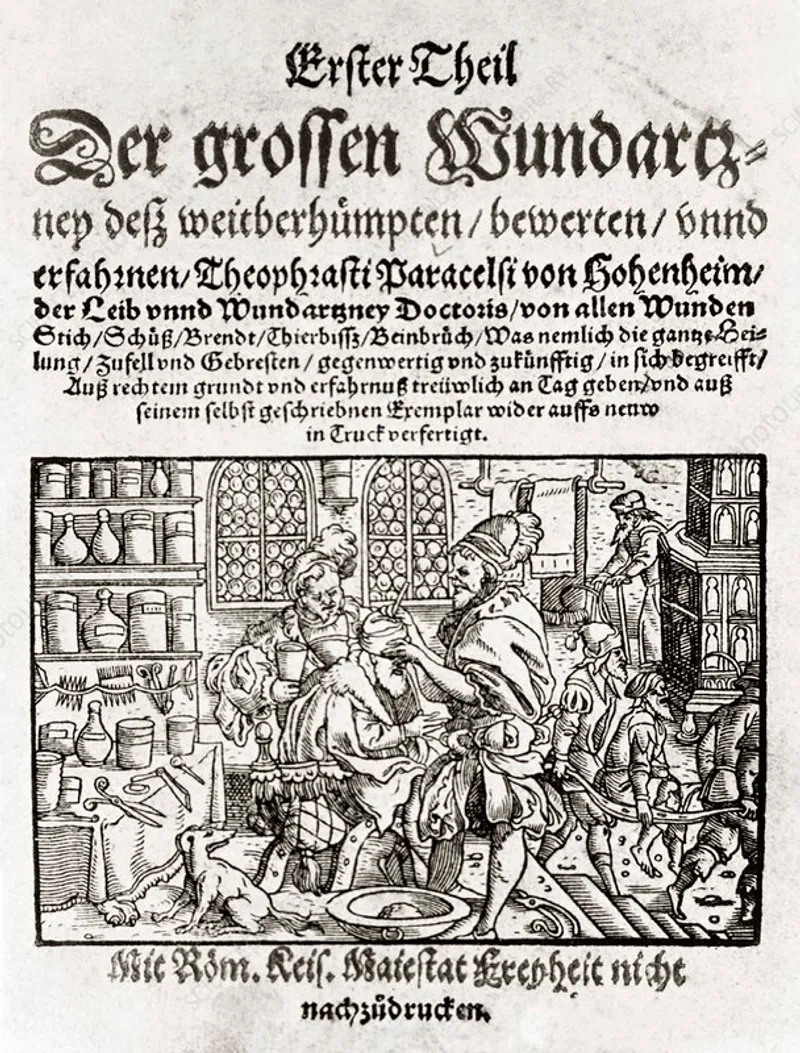 Erster Theil
Der grossen Wundartz-
ney deß weitberhůmpten/ bewerten/ vnnd
erfahrnen/ Theophrasti Paracelsi von Hohenheim/
der Leib vnnd Wundartzney Doctoris/ von allen Wunden
Stich/ Schüß/ Brendt/ Thierbissz/ Beinbrüch/ Was nemlich die gantze Hei-
lung/ Zufell vnd Gebresten/ gegenwertig vnd zukünfftig/ in sich begreifft/
Auß rechtem grundt vnd erfahrnuß treüwlich an Tag geben/ vnd auß
seinem selbst geschriebnen Exemplar wider auffs neuw
in Truck verfertigt.
Mit Röm. Keis. Maiestat Freyheit nicht
nachzůdrucken.